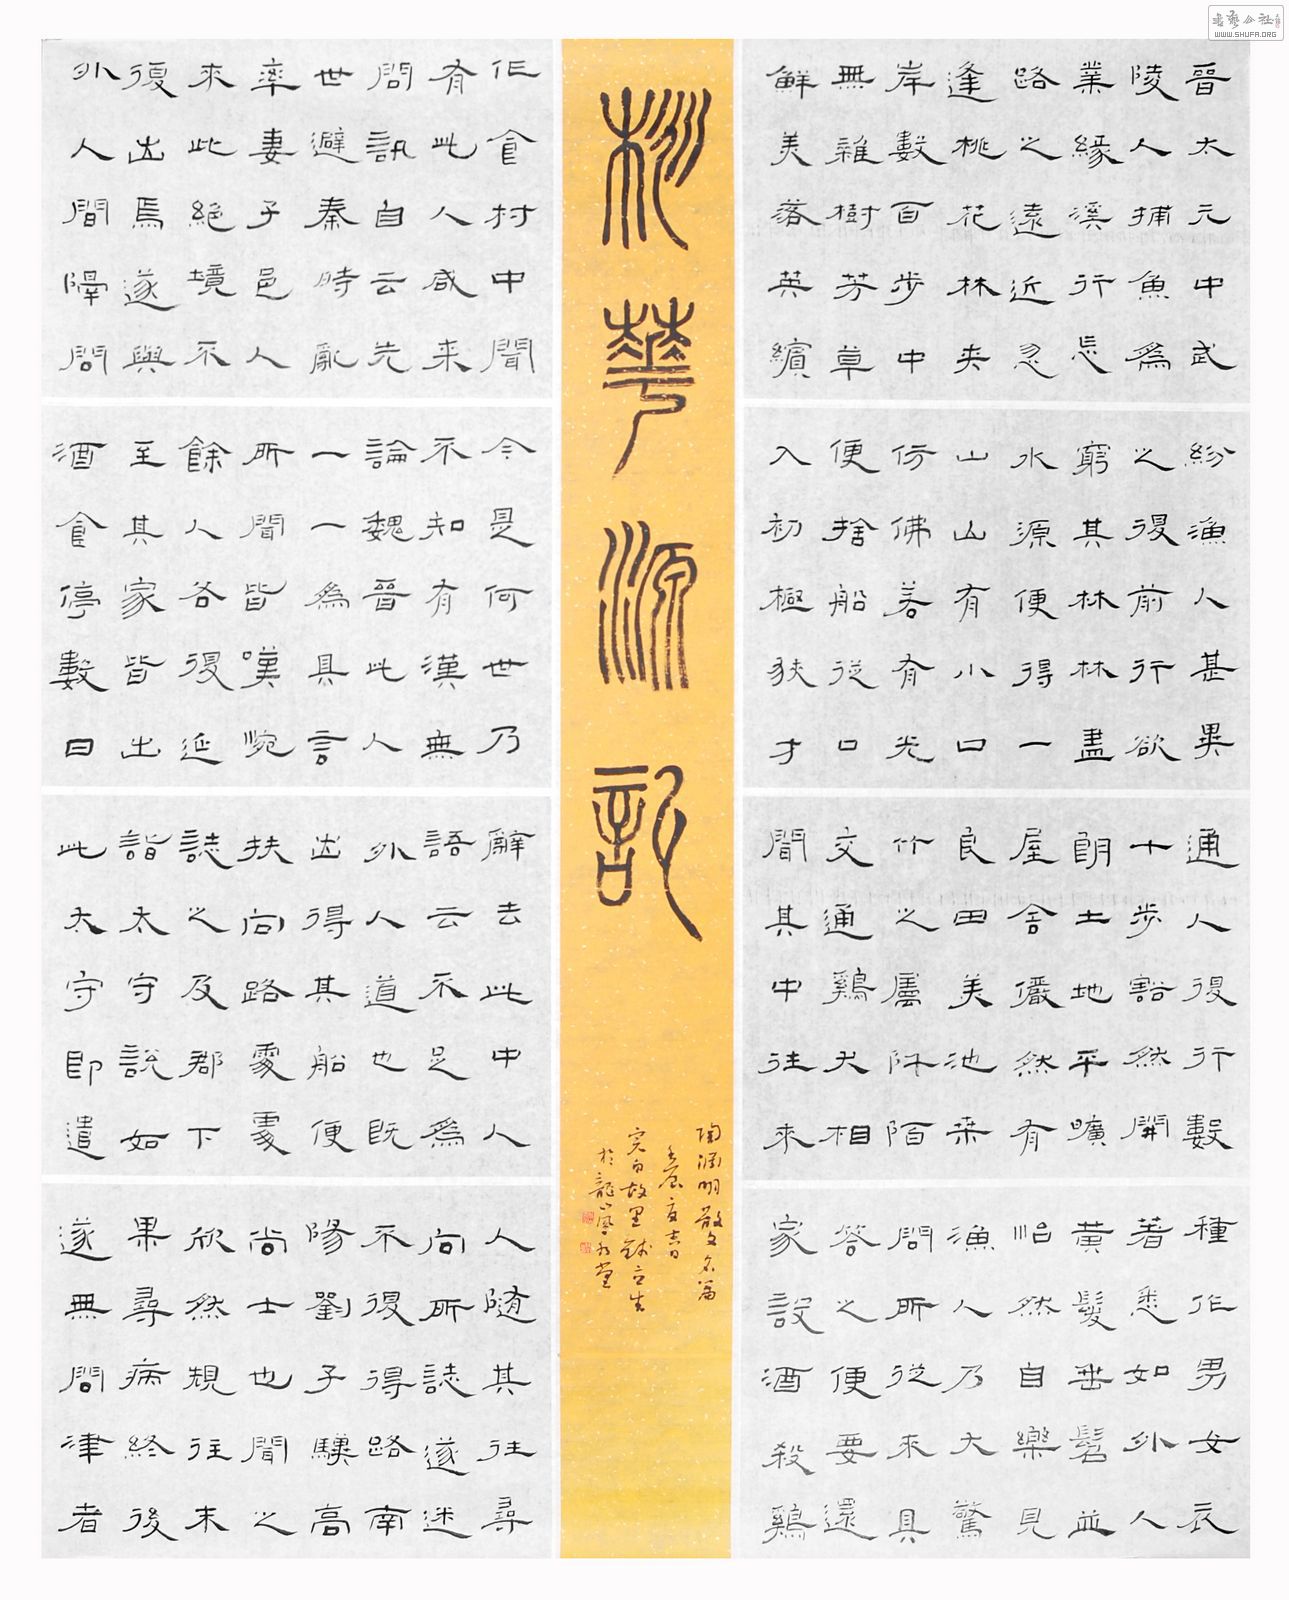 晉太元中武
陵人捕魚爲
業緣溪行忘
路之遠近忽
逢桃花林夾
岸數百步中
無雜樹芳草
鮮美落英繽
紛漁人甚異
之復前行欲
窮其林林盡
水源便得一
山山有小口
仿佛若有光
便捨船從口
入初極狹才
通人復行數
十步豁然開
朗土地平曠
屋舍儼然有
良田美池桑
竹之屬阡陌
交通鷄犬相
聞其中往來
種作男女衣
著悉如外人
黃髮垂髫並
怡然自樂見
漁人乃大驚
問所從來具
答之便要還
家設酒殺鷄
桃華源記
陶淵明散文名篇
壬辰夏吉日
故里
於龍山風水堂
作食村中聞
有此人咸來
問訊自云先
世避秦時亂
率妻子邑人
來此絕境不
復出焉遂與
外人間隔問
今是何世乃
不知有漢無
論魏晉此人
一一爲具言
所聞皆嘆惋
餘人各復延
至其家皆出
酒食停數日
辭去此中人
語云不足爲
外人道也既
出得其船便
扶向路處處
誌之及郡下
詣太守說如
此太守即遣
人隨其往尋
向所誌遂迷
不復得路南
陽劉子驥高
尚士也聞之
欣然規往未
果尋病終後
遂無問津者
書藝公社
WWW.SHUFA.ORG